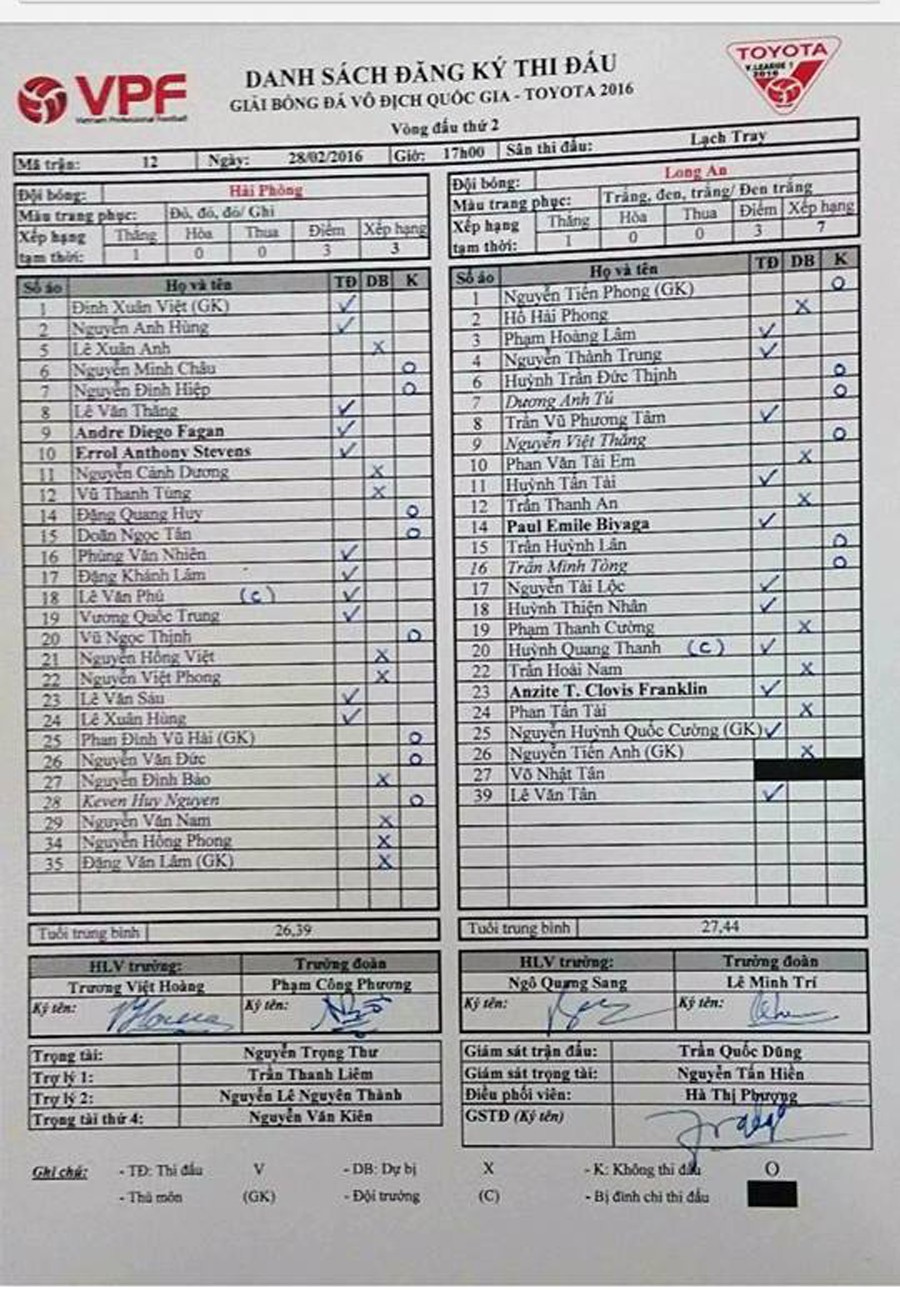 VPF
Vietnam Professional Football
DANH SÁCH ĐĂNG KÝ THI ĐẤU
GIẢI BÓNG ĐÁ VÔ ĐỊCH QUỐC GIA - TOYOTA 2016
Vòng đấu thứ 2
TOYOTA
V.LEAGUE 1
2016
Mã trận: 12 Ngày: 28/02/2016 Giờ: 17h00 Sân thi đấu: Lạch Tray
Đội bóng: Hải Phòng
Màu trang phục: Đỏ, đỏ, đỏ/ Ghi
Xếp hạng tạm thời: Thắng Hòa Thua Điểm Xếp hạng
1 0 0 3 3
Số áo Họ và tên TĐ DB K
1 Đinh Xuân Việt (GK) ✓
2 Nguyễn Anh Hùng ✓
5 Lê Xuân Anh X
6 Nguyễn Minh Châu O
7 Nguyễn Đình Hiệp O
8 Lê Văn Thắng ✓
9 Andre Diego Fagan ✓
10 Errol Anthony Stevens ✓
11 Nguyễn Cảnh Dương X
12 Vũ Thanh Tùng X
14 Đặng Quang Huy O
15 Doãn Ngọc Tân O
16 Phùng Văn Nhiên ✓
17 Đặng Khánh Lâm ✓
18 Lê Văn Phú (C) ✓
19 Vương Quốc Trung ✓
20 Vũ Ngọc Thịnh O
21 Nguyễn Hồng Việt X
22 Nguyễn Việt Phong X
23 Lê Văn Sáu ✓
24 Lê Xuân Hùng ✓
25 Phan Đình Vũ Hải (GK) O
26 Nguyễn Văn Đức O
27 Nguyễn Đình Bảo X
28 Keven Huy Nguyen O
29 Nguyễn Văn Nam X
34 Nguyễn Hồng Phong X
35 Đặng Văn Lâm (GK) X
Tuổi trung bình 26,39
HLV trưởng: Trưởng đoàn
Trương Việt Hoàng Phạm Công Phương
Ký tên: Ký tên:
Trọng tài: Nguyễn Trọng Thư
Trợ lý 1: Trần Thanh Liêm
Trợ lý 2: Nguyễn Lê Nguyên Thành
Trọng tài thứ 4: Nguyễn Văn Kiên
Đội bóng: Long An
Màu trang phục: Trắng, đen, trắng/ Đen trắng
Xếp hạng tạm thời: Thắng Hòa Thua Điểm Xếp hạng
1 0 0 3 7
Số áo Họ và tên TĐ DB K
1 Nguyễn Tiến Phong (GK) O
2 Hồ Hải Phong X
3 Phạm Hoàng Lâm ✓
4 Nguyễn Thành Trung ✓
6 Huỳnh Trần Đức Thịnh O
7 Dương Anh Tú O
8 Trần Vũ Phương Tâm ✓
9 Nguyễn Việt Thắng O
10 Phan Văn Tài Em X
11 Huỳnh Tấn Tài ✓
12 Trần Thanh An X
14 Paul Emile Biyaga ✓
15 Trần Huỳnh Lân O
16 Trần Minh Tòng O
17 Nguyễn Tài Lộc ✓
18 Huỳnh Thiện Nhân ✓
19 Phạm Thanh Cường X
20 Huỳnh Quang Thanh (C) ✓
22 Trần Hoài Nam X
23 Anzite T. Clovis Franklin ✓
24 Phan Tấn Tài X
25 Nguyễn Huỳnh Quốc Cường (GK) ✓
26 Nguyễn Tiến Anh (GK) X
27 Võ Nhật Tân
39 Lê Văn Tân ✓
Tuổi trung bình 27,44
HLV trưởng: Trưởng đoàn
Ngô Quang Sang Lê Minh Trí
Ký tên: Ký tên:
Giám sát trận đấu: Trần Quốc Dũng
Giám sát trọng tài: Nguyễn Tấn Hiền
Điều phối viên: Hà Thị Phượng
GSTĐ (Ký tên)
Ghi chú: - TĐ: Thi đấu V - DB: Dự bị X - K: Không thi đấu O
- Thủ môn (GK) - Đội trưởng (C) - Bị đình chỉ thi đấu